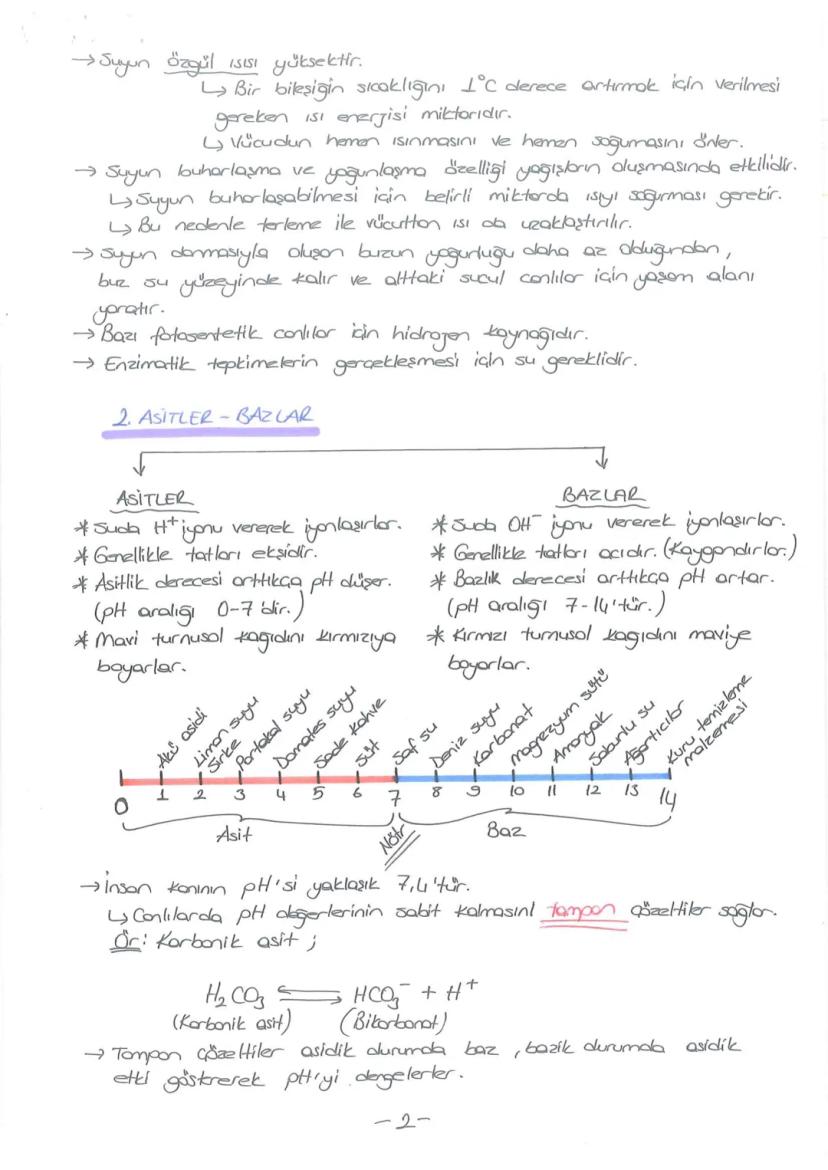 → Suyun özgül ısısı yüksektir.
↳ Bir bileşiğin sıcaklığını 1°C derece artırmak için verilmesi
gereken ısı enerjisi miktarıdır.
↳ Vücudun hemen ısınmasını ve hemen soğumasını önler.
→ Suyun buharlaşma ve yoğunlaşma özelliği yağışların oluşmasında etkilidir.
↳ Suyun buharlaşabilmesi için belirli miktarda ısıyı soğurması gerekir.
↳ Bu nedenle terleme ile vücuttan ısı da uzaklaştırılır.
→ Suyun donmasıyla oluşan buzun yoğurluğu daha az olduğundan,
buz su yüzeyinde kalır ve alttaki sucul canlılar için yaşam alanı
yaratır.
→ Bazı fotosentetik canlılar için hidrojen kaynağıdır.
→ Enzimatik tepkimelerin gerçekleşmesi için su gereklidir.
2. ASİTLER - BAZLAR
ASİTLER
* Suda H⁺ iyonu vererek iyonlaşırlar.
* Genellikle tatları ekşidir.
* Asitlik derecesi arttıkça pH düşer.
(pH aralığı 0-7'dir.)
* Mavi turnusol kağıdını kırmızıya
boyarlar.
BAZLAR
* Suda OH⁻ iyonu vererek iyonlaşırlar.
* Genellikle tatları acıdır. (Kaygandırlar.)
* Bazlık derecesi arttıkça pH artar.
(pH aralığı 7-14'tür.)
* Kırmızı turnusol kağıdını maviye
boyarlar.
Akü asidi
Limon suyu
Sirke
Portakal suyu
Domates suyu
Sade kahve
Süt
Saf su
Deniz suyu
Karbonat
Magnezyum sütü
Amonyak
Sabunlu su
Ağartıcılar
Kuru temizleme
malzemesi
0 1 2 3 4 5 6 7 8 9 10 11 12 13 14
Asit
Nötr
Baz
→ İnsan kanının pH'si yaklaşık 7,4'tür.
↳ Canlılarda pH değerlerinin sabit kalmasını tampon çözeltiler sağlar.
Ör: Karbonik asit ;
H₂CO₃ ⇌ HCO₃⁻ + H⁺
(Karbonik asit) (Bikarbonat)
→ Tampon çözeltiler asidik durumda baz, bazik durumda asidik
etki göstererek pH'yi dengelerler.
-2-